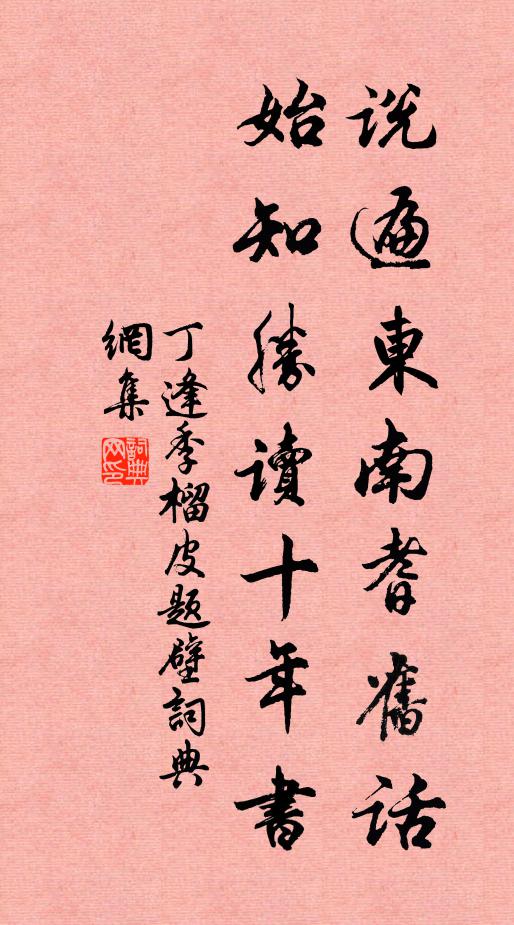 说遍東南耆舊话
始知勝讀十年書
丁逢季榴皮题壁詞典
網集
詞典
网印